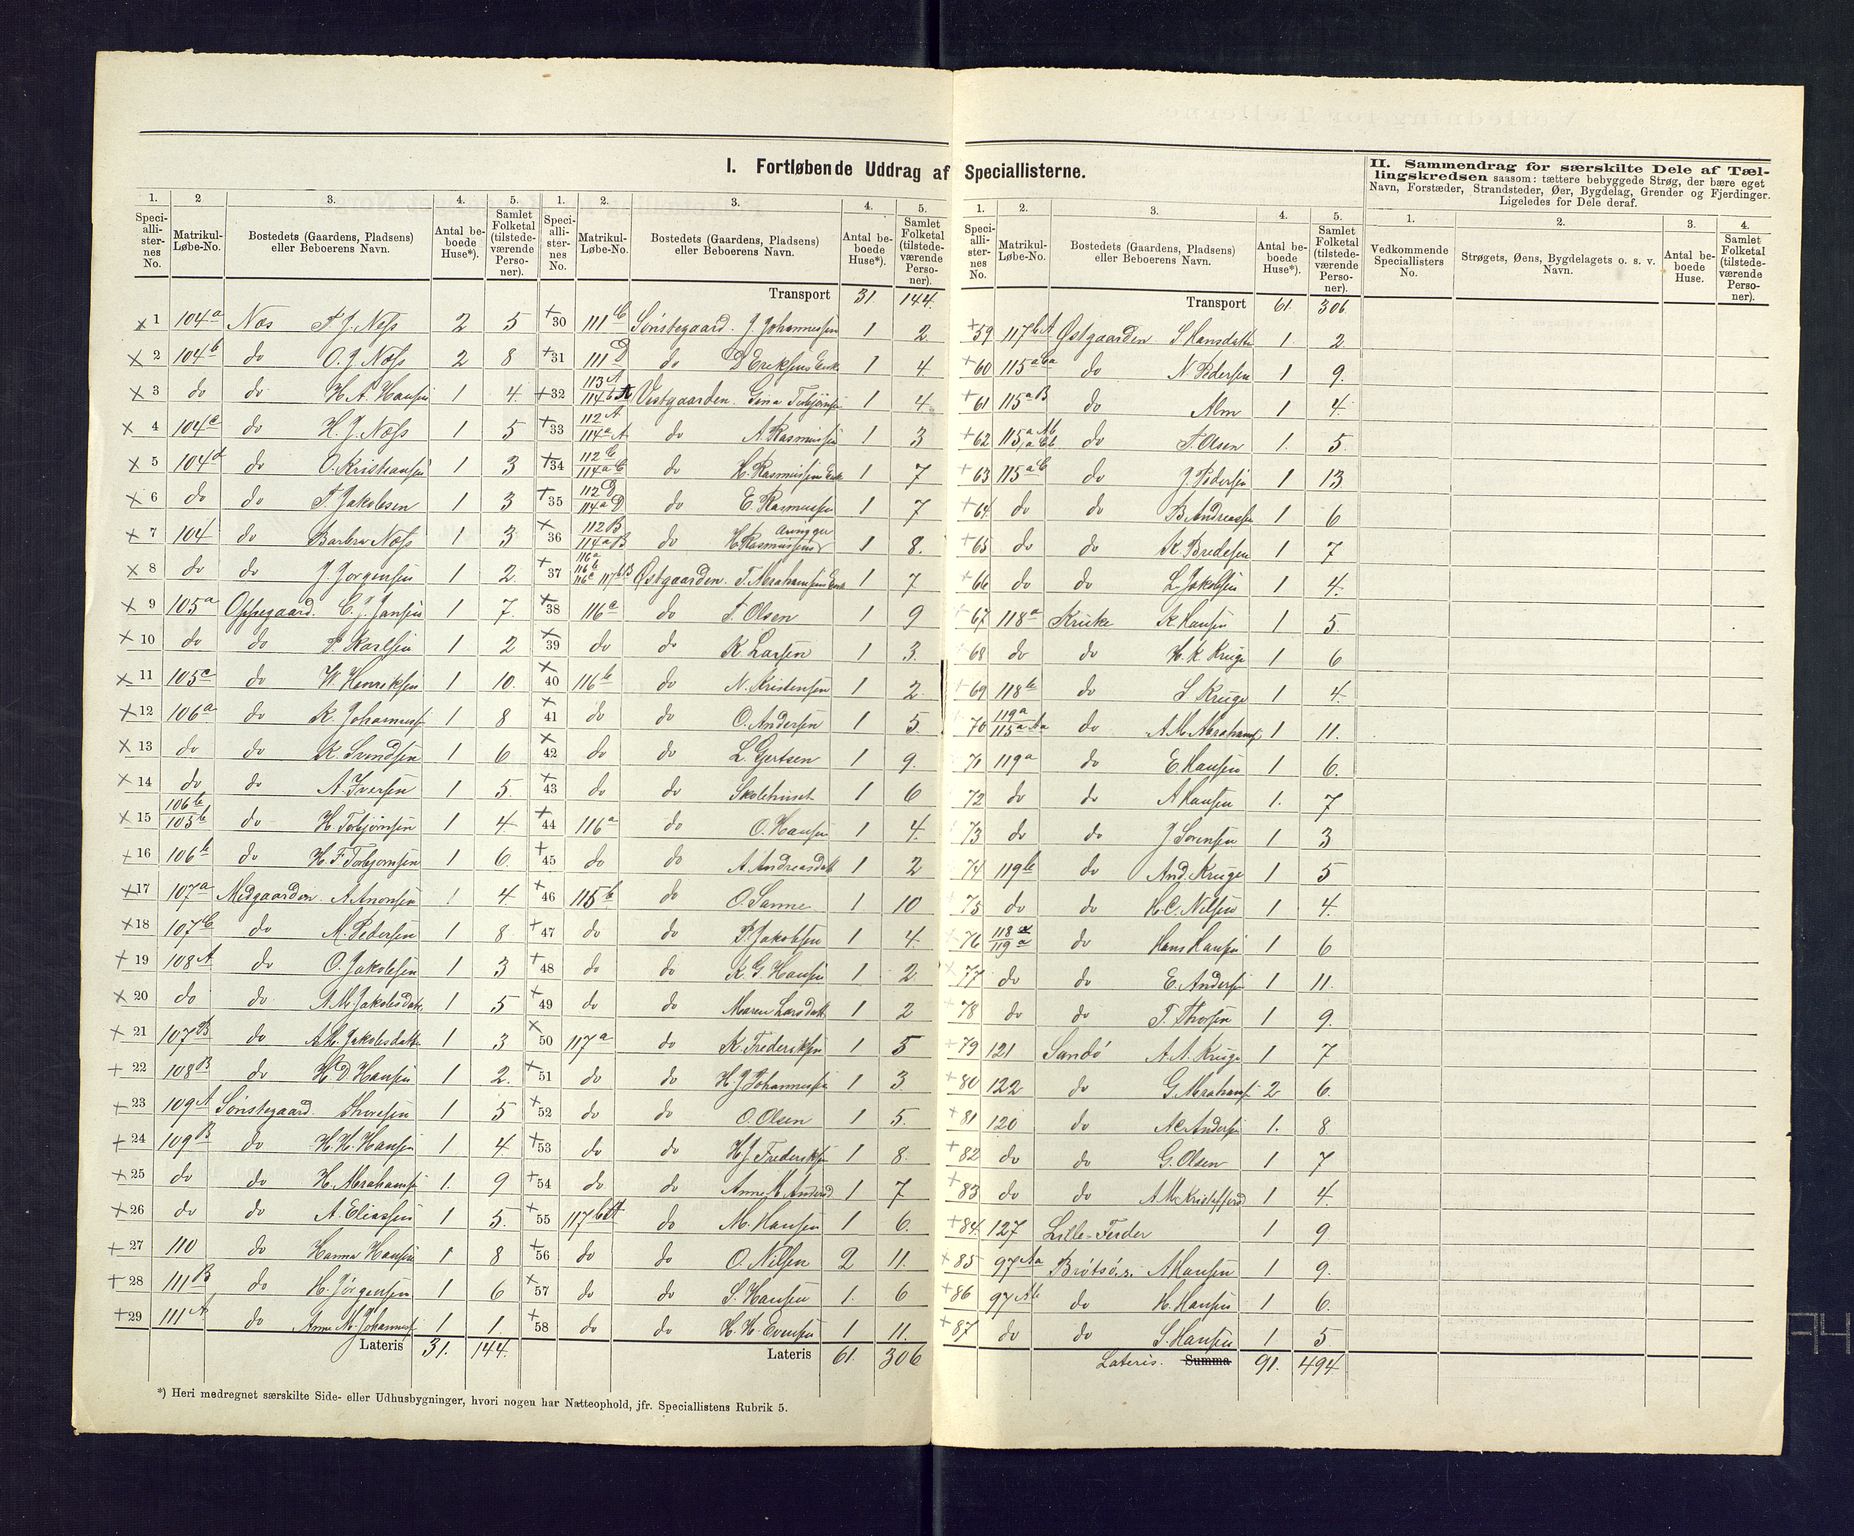 I. Fortløbende Uddrag af Speciallisterne.
1. 2 3. 4. 5.
Speciallisternes No. Matrikul-Løbe-No. Bostedets (Gaardens, Pladsens) eller Beboerens Navn. Antal beboede Huse*). Samlet Folketal (tilstedeværende Personer).
× 1 104a Næs T. J. Næss 2 5
× 2 104b do O. J. Næss 2 8
× 3 do do H. A. Hansen 1 4
× 4 104c do H. J. Næss 1 5
× 5 104d do O. Kristiansen 1 3
× 6 do do T. Jakobsen 1 3
× 7 104 do Barbra Næss 1 3
× 8 do do J. Jørgensen 1 2.
× 9 105a Oppegaard. C. J. Jansen 1 7.
× 10 do do P. Karlsen 1 2
× 11 105c do W. Henriksen 1 10.
× 12 106a do K. Johannessen 1 8
× 13 do do K. Svendsen 1 6
× 14 do do A. Iversen 1 5.
× 15 106b 105b do H. Torbjørnsen 1 4
+ 16 106b do H. F. Torbjørnsen 1 6
× 17 107a Midgaarden A. Anonsen 1 4
× 18 107C do M. Pedersen 1 8
+ 19 108A do O. Jakobsen 1 3
× 20 do do A. M. Jakobsdatt. 1 5
+ 21 107B do A. M. Jakobsdatt. 1 3
+ 22 108B do H. D. Hansen 1 2.
+ 23 109A Sønstegaard. Thoresen 1 5
+ 24 109B do H. H. Hansen 1 4
× 25 do do H. Abrahamsen 1. 9
× 26 do do A. Eliassen 1 5.
+ 27 110 do Hanna Hansen 1 8
+ 28 111B do H. Jørgensen 1 6
+ 29 111A do Anne M. Johanness. 1 1.
Lateris 31. 144.
*) Heri medregnet særskilte Side- eller Udhusbygninger, hvori nogen har Natteophold, jfr. Speciallistens Rubrik 5.
1. 2. 3. 4. 5.
Speciallisternes No. Matrikul-Løbe-No. Bostedets (Gaardens, Pladsens) eller Beboerens Navn. Antal beboede Huse*). Samlet Folketal (tilstedeværende Personer).
Transport 31 144.
+ 30 111C Sønstegaard. J. Johannessen 1 2.
+ 31 111D do D. Eriksens Enk. 1 4
+ 32 113A 114bA Vestgaarden. Gina Torbjørnsen 1 4.
+ 33 112A 114aA do A. Rasmussen 1 3
+ 34 112C 114aC do H. Rasmussens Enk 1 7
+ 35 112D 114aD do E. Rasmussen 1 7
× 36 112B 114aB do H. Rasmussens 1 8.
× 37 116a 116b 116c 117bB Østgaarden. T. Abrahamsens Enk 1 7
× 38 116c do T. Olsen 1 9
× 39 do do K. Larsen 1 3.
× 40 116b do N. Kristensen 1 2.
× 41 do do O. Andersen 1 5.
× 42 do do L. Gjertsen 1 9.
× 43 do do Skolehuset 1 6
+ 44 116a do O. Hansen 1 4.
+ 45 do do A. Andreasdatt 1 2
+ 46 115b do O. Sanne 1 10
+ 47 do do P. Jakobsen 1 4.
+ 48 do do K. G. Hansen 1 2.
+ 49 do do Maren Larsdatt. 1 2
× 50 117a do K. Frederiksen 1 5
+ 51 do do H. J. Johannessen 1 3
+ 52 do do O. Olsen 1 5.
+ 53 do do H. J. Frederiksen 1 8.
+ 54 do do Anne M. Andersd 1 7
+ 55 117bA do M. Hansen 1 6.
+ 56 do do O. Nilsen 2 11.
× 57 do do S. Hansen 1. 6
+ 58 do do H. H. Evensen 1 11.
Lateris 61. 306
1. 2. 3. 4. 5.
Speciallisternes No. Matrikul-Løbe-No. Bostedets (Gaardens, Pladsens) eller Beboerens Navn. Antal beboede Huse*). Samlet Folketal (tilstedeværende Personer).
Transport 61. 306.
+59 117bA Østgaarden S. Hansdatter 1. 2.
+60 115aCa do N. Pedersen 1 9.
+ 61 115aB do Alm 1 4
+ 62 do T. Olsen 1. 5.
+ 63 115aC do J. Pedersen 1 13
+ 64 do do B. Andreassen 1 6
+ 65 do do K. Bredesen 1 7
+ 66 do do L. Jakobsen 1 4.
+ 67 118a Kruke K. Hansen 1 5.
+ 68 do do H. K. Kruge 1 6
+ 69 118b do S. Kruge 1 4.
+ 70 119a 115aAa do A. M. Abrahams 1 11.
+ 71 119a do E. Hansen 1 6.
72 do do A. Hansen 1. 7
73 do do J. Sørensen 1 3
74 119b do And. Kruge 1 5
75 do do H. C. Nilsen 1 4.
76 118a 119a do Hans Hansen 1 6
77 do do E. Andersen 1 11.
78 do do T. Thorsen 1 9.
+ 79 121 Sandø A. A. Kruge 1 7
+ 80 122 do G. Abrahams. 2 6.
+ 81 120 do A. C. Andersen 1. 8
+ 82 do do G. Olsen 1 7
+ 83 do do A. M. Kristoffersd 1 4.
+ 84. 127 Lille-Færder 1 9
× 85 97Aa Brøtsø. A. Hansen 1 9.
+ 86 97Ab do H. Hansen 1 6.
+ 87 do do S. Hansen 1 5
Lateris. Summa 91. 494.
II. Sammendrag for særskilte Dele af Tællingskredsen saasom: tættere bebyggede Strøg, der bære eget Navn, Forstæder, Strandsteder, Øer, Bygdelag, Grender og Fjerdinger. Ligeledes for Dele deraf.
1. 2. 3. 4.
Vedkommende Speciallisters No. Strøgets, Øens, Bygdelagets o. s. v. Navn. Antal beboede Huse. Samlet Folketal (tilstedeværende Personer).